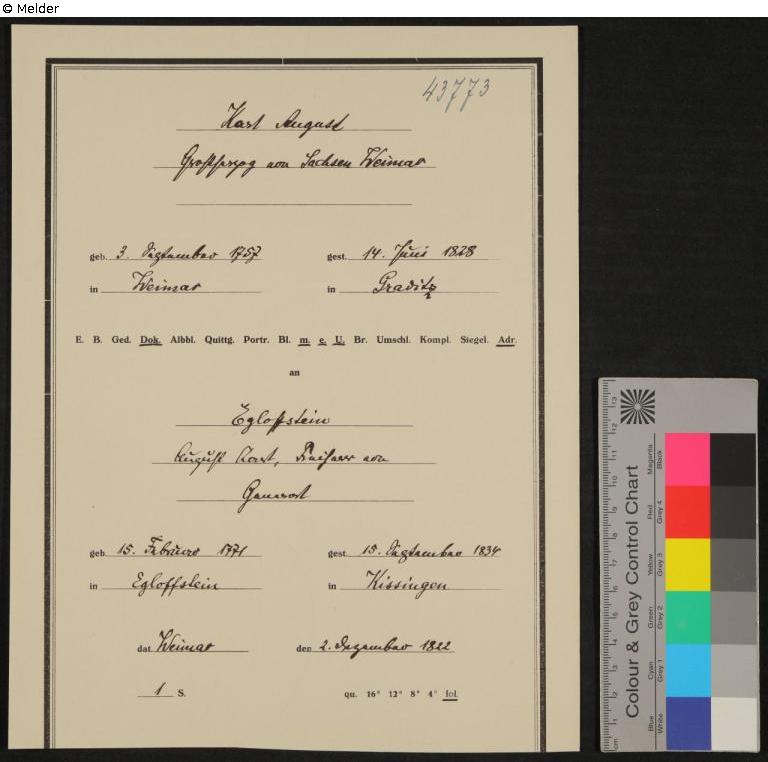 © Melder
43773
Karl August
Großherzog von Sachsen Weimar
geb. 3. September 1757 gest. 14. Juni 1828
in Weimar in Graditz
E. B. Ged. Dok. Albbl. Quittg. Portr. Bl. m. e. U. Br. Umschl. Kompl. Siegel. Adr.
an
Egloffstein
August Karl, Freiherr von
General
geb. 15. Februar 1771 gest. 15. September 1834
in Egloffstein in Kissingen
dat. Weimar den 2. Dezember 1822
1 S. qu. 16° 12° 8° 4° fol.
Colour & Grey Control Chart
Blue Cyan Green Yellow Red Magenta
White Grey 1 Grey 2 Grey 3 Grey 4 Black
cm 1 2 3 4 5 6 7 8 9 10 11 12 13